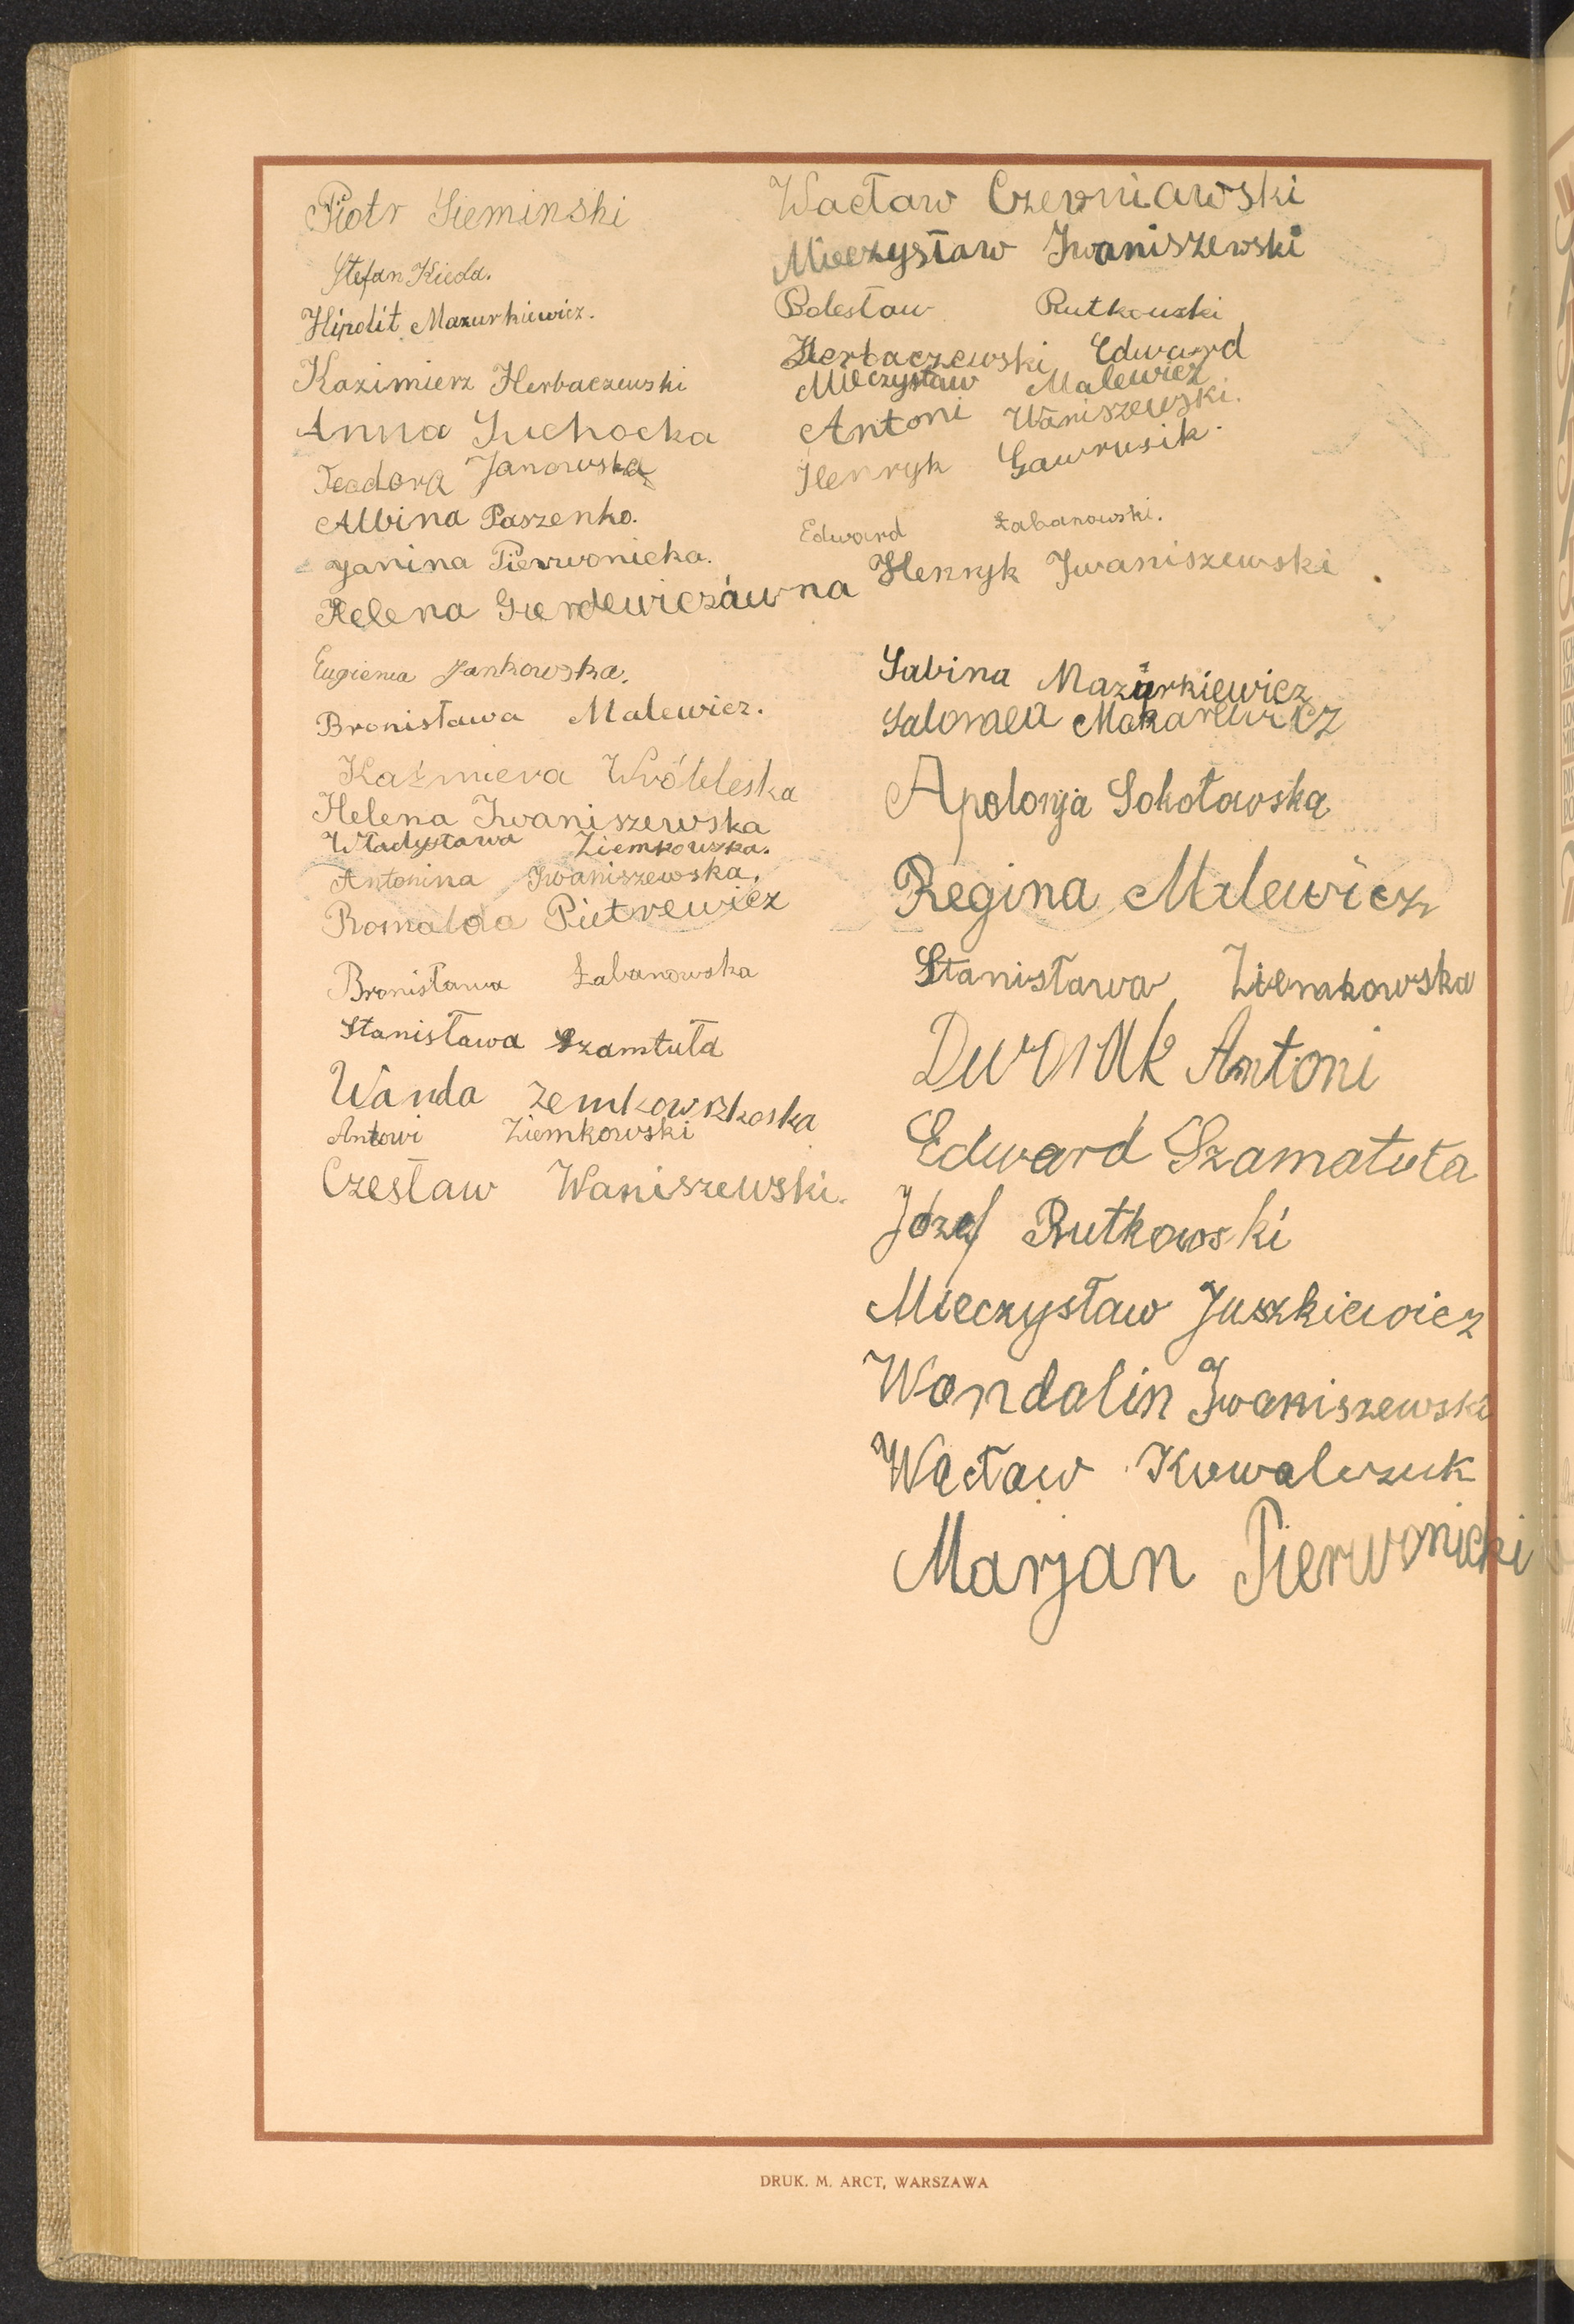 Piotr Sieminski
Stefan Kieda.
Hipolit Mazurkiewicz.
Kazimierz Herbaczewski
Anna Suchocka
Teodora Janowska
Albina Paszenko.
Janina Pierwonicka.
Helena Gierdewiczówna
Eugienia Jankowska.
Bronisława Malewicz.
Kaźmiera Wróbleska
Helena Iwaniszewska
Władysława Ziemkowska.
Antonina Iwaniszewska.
Romalda Pietrewicz
Bronisława Łabanowska
Stanisława Szamtuła
Wanda
Antowi Ziemkowski
Czesław Waniszewski.
Wacław Czerniawski
Mieczysław Iwaniszewski
Bolesław Rutkowski
Herbaczewski Edward
Mieczysław Malewicz
Antoni Waniszewski.
Henryk Gawrusik.
Edward Łabanowski.
Henryk Iwaniszewski
Sabina Mazurkiewicz
Salomea Makarewicz
Apolonja Sokołowska
Regina Malewicz
Stanisława Ziemkowska
Antoni
Edward Szamatuła
Józef Rutkowski
Mieczysław Juszkiewicz
Wandalin Iwaniszewski
Wacław Kowalczuk
Marjan Pierwonicki
DRUK. M. ARCT, WARSZAWA